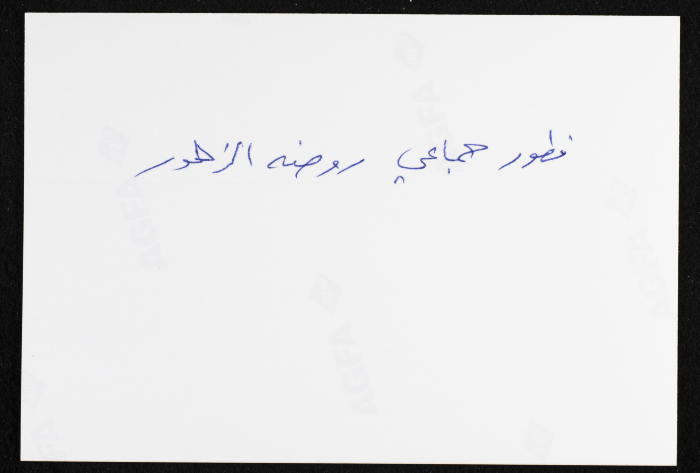 فطور جماعي روضه الزهور
AGFA
AGFA
AGFA
AGFA